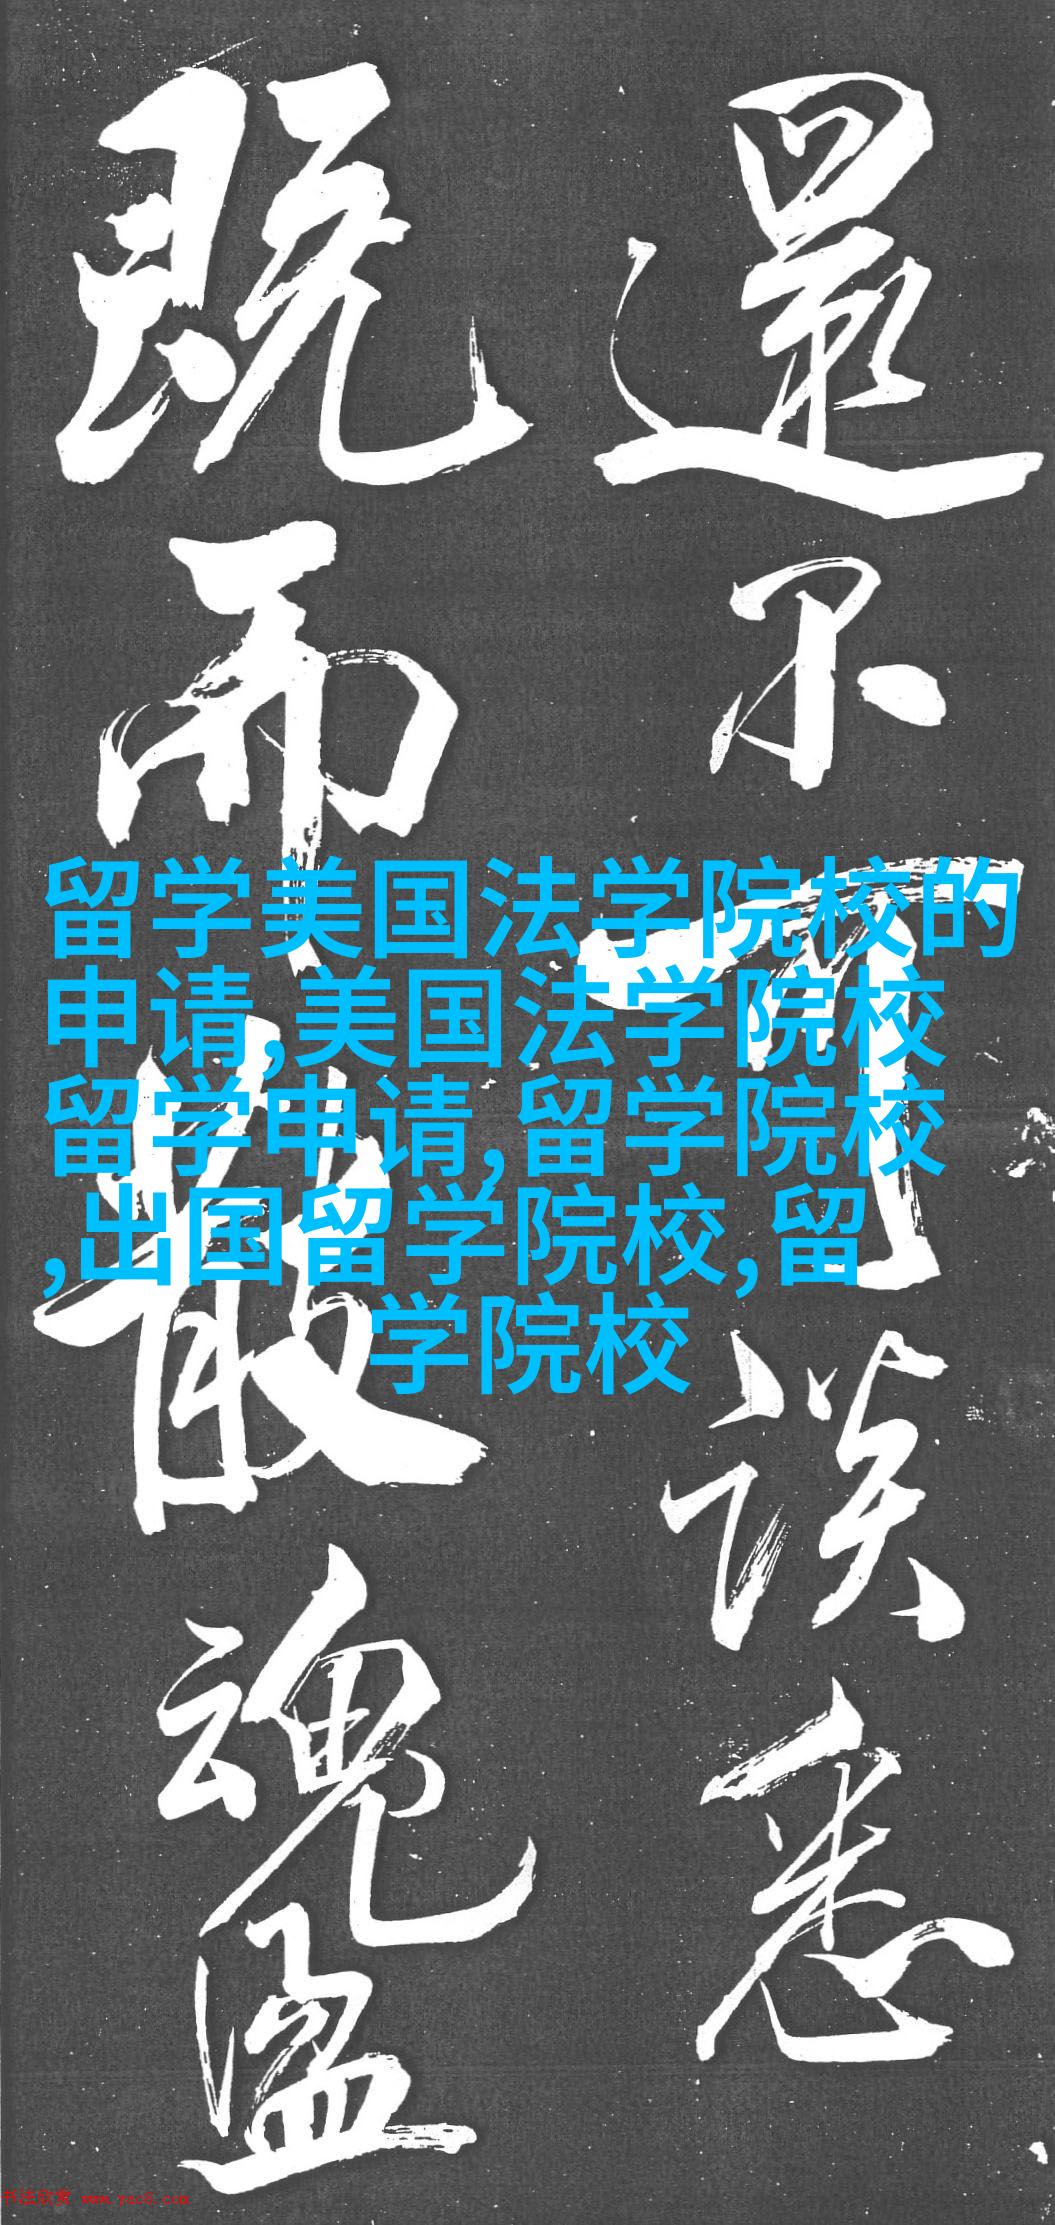 還不可談悉
既而散魂盪
留学美国法学院校的
申请,美国法学院校
留学申请,留学院校
,出国留学院校,留
学院校
书法欣赏 www.yac8.com